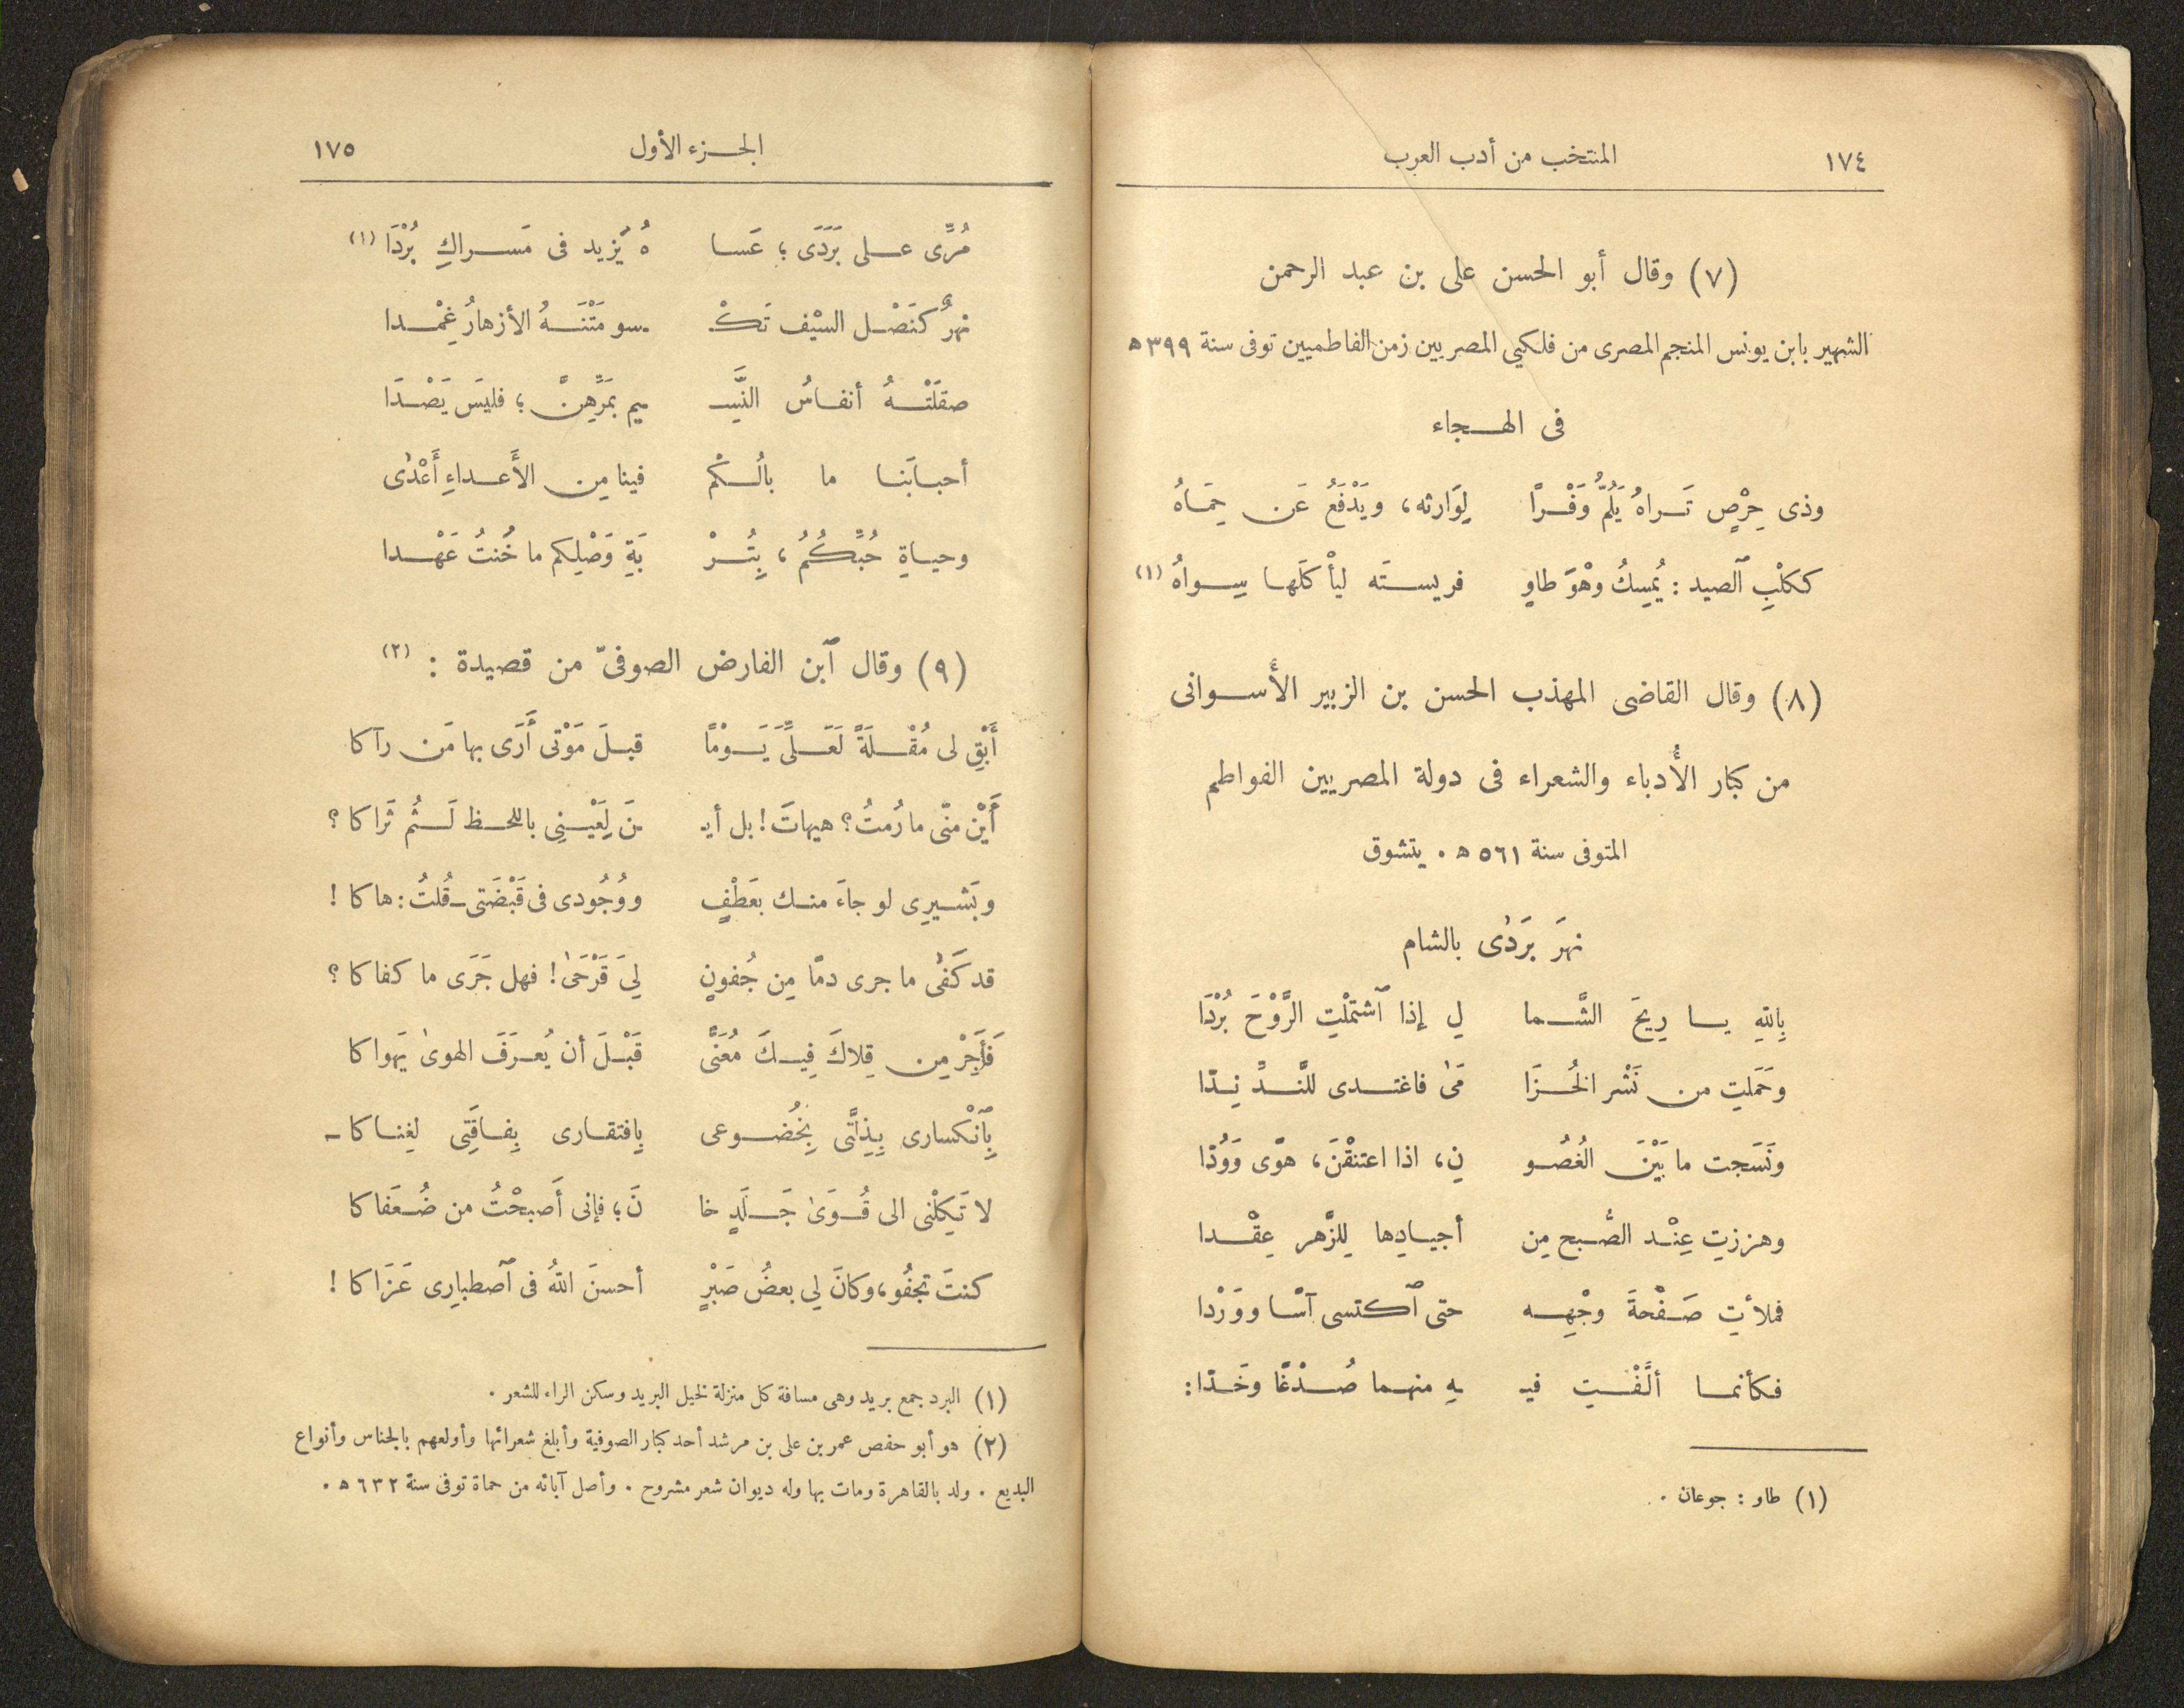 ١٧٤ المنتخب من أدب العرب
(٧) وقال أبو الحسن على بن عبد الرحمن
الشهير بابن يونس المنجم المصرى من فلكيي المصريين زمن الفاطميين توفى سنة ٣٩٩ ه
فى الهجاء
وذى حِرْصٍ تَراهُ يَلُمُّ وَفْرًا لِوَارثه، ويَدْفَعُ عَن حِمَاهُ
ككلْبِ ٱلصيد : يُمسِكُ وهْوَ طاوٍ فريستَه ليأكلَها سِواهُ (١)
(٨) وقال القاضى المهذب الحسن بن الزبير الأَسوانى
من كبار الأُدباء والشعراء فى دولة المصريين الفواطم
المتوفى سنة ٥٦١ ه . يتشوق
نهرَ بَرَدَى بالشام
بِاللهِ يا رِيحَ الشَّما لِ إذا ٱشتَمْلتِ الرَّوْحَ بُرْدَا
وحَمَلتِ من نَشْر الخُزَا مَى فاغتدى للنَّدِّ نِدّا
ونَسَجت ما بَيْنَ الغُصُو نِ، اذا اعتنقْنَ، هوًى وَوُدّا
وهززتِ عِنْد الصُّبح مِن أجيادِها لِلزَّهر عِقْدا
فملأتِ صَفْحةَ وجْهِه حتى ٱكتسى آسًا ووَرْدا
فكأنما ألَّفْتِ فيـ ـهِ منهما صُدْغًا وخَدّا :
(١) طاو : جوعان .
الجزء الأول ١٧٥
مُرِّى على بَرَدَى ؛ عَسا هُ يَزيد فى مَسراكِ بُرْدَا (١)
نهرٌ كنَصْل السيْف تَكْـ ـسو مَتْنَهُ الأزهارُ غِمْدا
صقلَتْهُ أنفاسُ النَّسِيـ ـيم بمَرِّهِنَّ ؛ فليسَ يَصْدَا
أحبابَنا ما بالُكُم فينا مِن الأَعداءِ أَعْدَى
وحياةِ حُبِّكُمُ ، بِتُرْ بَةِ وَصْلِكم ما خُنتُ عَهْدا
(٩) وقال ٱبن الفارض الصوفىّ من قصيدة : (٢)
أَبْقِ لى مُقْلَةً لَعَلِّىَ يَوْمًا قبلَ مَوْتى أَرَى بها مَن رآكا
أَيْن منّى ما رُمتُ؟ هيهاتَ! بل أيـ ـنَ لِعَيْنِى باللحظ لَثْمُ ثَرَاكا ؟
وبَشيرِى لو جاءَ منك بعَطْفٍ ووُجُودى فى قَبْضَتى ـ قُلتُ : هاكا !
قد كَفَى ما جرى دمًا مِن جُفونٍ لِىَ قَرْحَى! فهل جَرَى ما كفاكا ؟
فَأَجِرْ مِن قِلاكَ فِيكَ مُعَنًّى قَبْلَ أن يُعرَفَ الهوىٰ يَهواكا
بِٱنْكسارى بِذِلَّتى بِخُضوعى بِافتقارى بِفاقَتِى لِغِناكا ـ
لا تَكِلْنى الى قُوَىٰ جَلَدٍ خا نَ ؛ فإنى أَصبحْتُ من ضُعَفاكا
كنتَ تجفُو، وكانَ لِي بعضُ صَبْرٍ أحسنَ اللهُ فى ٱصطبارِى عَزَاكا !
(١) البرد جمع بريد وهى مسافة كل منزلة لخيل البريد وسكن الراء للشعر .
(٢) هو أبو حفص عمر بن على بن مرشد أحد كبار الصوفية وأبلغ شعرائها وأولعهم بالجناس وأنواع
البديع . ولد بالقاهرة ومات بها وله ديوان شعر مشروح . وأصل آبائه من حماة توفى سنة ٦٣٢ ه .